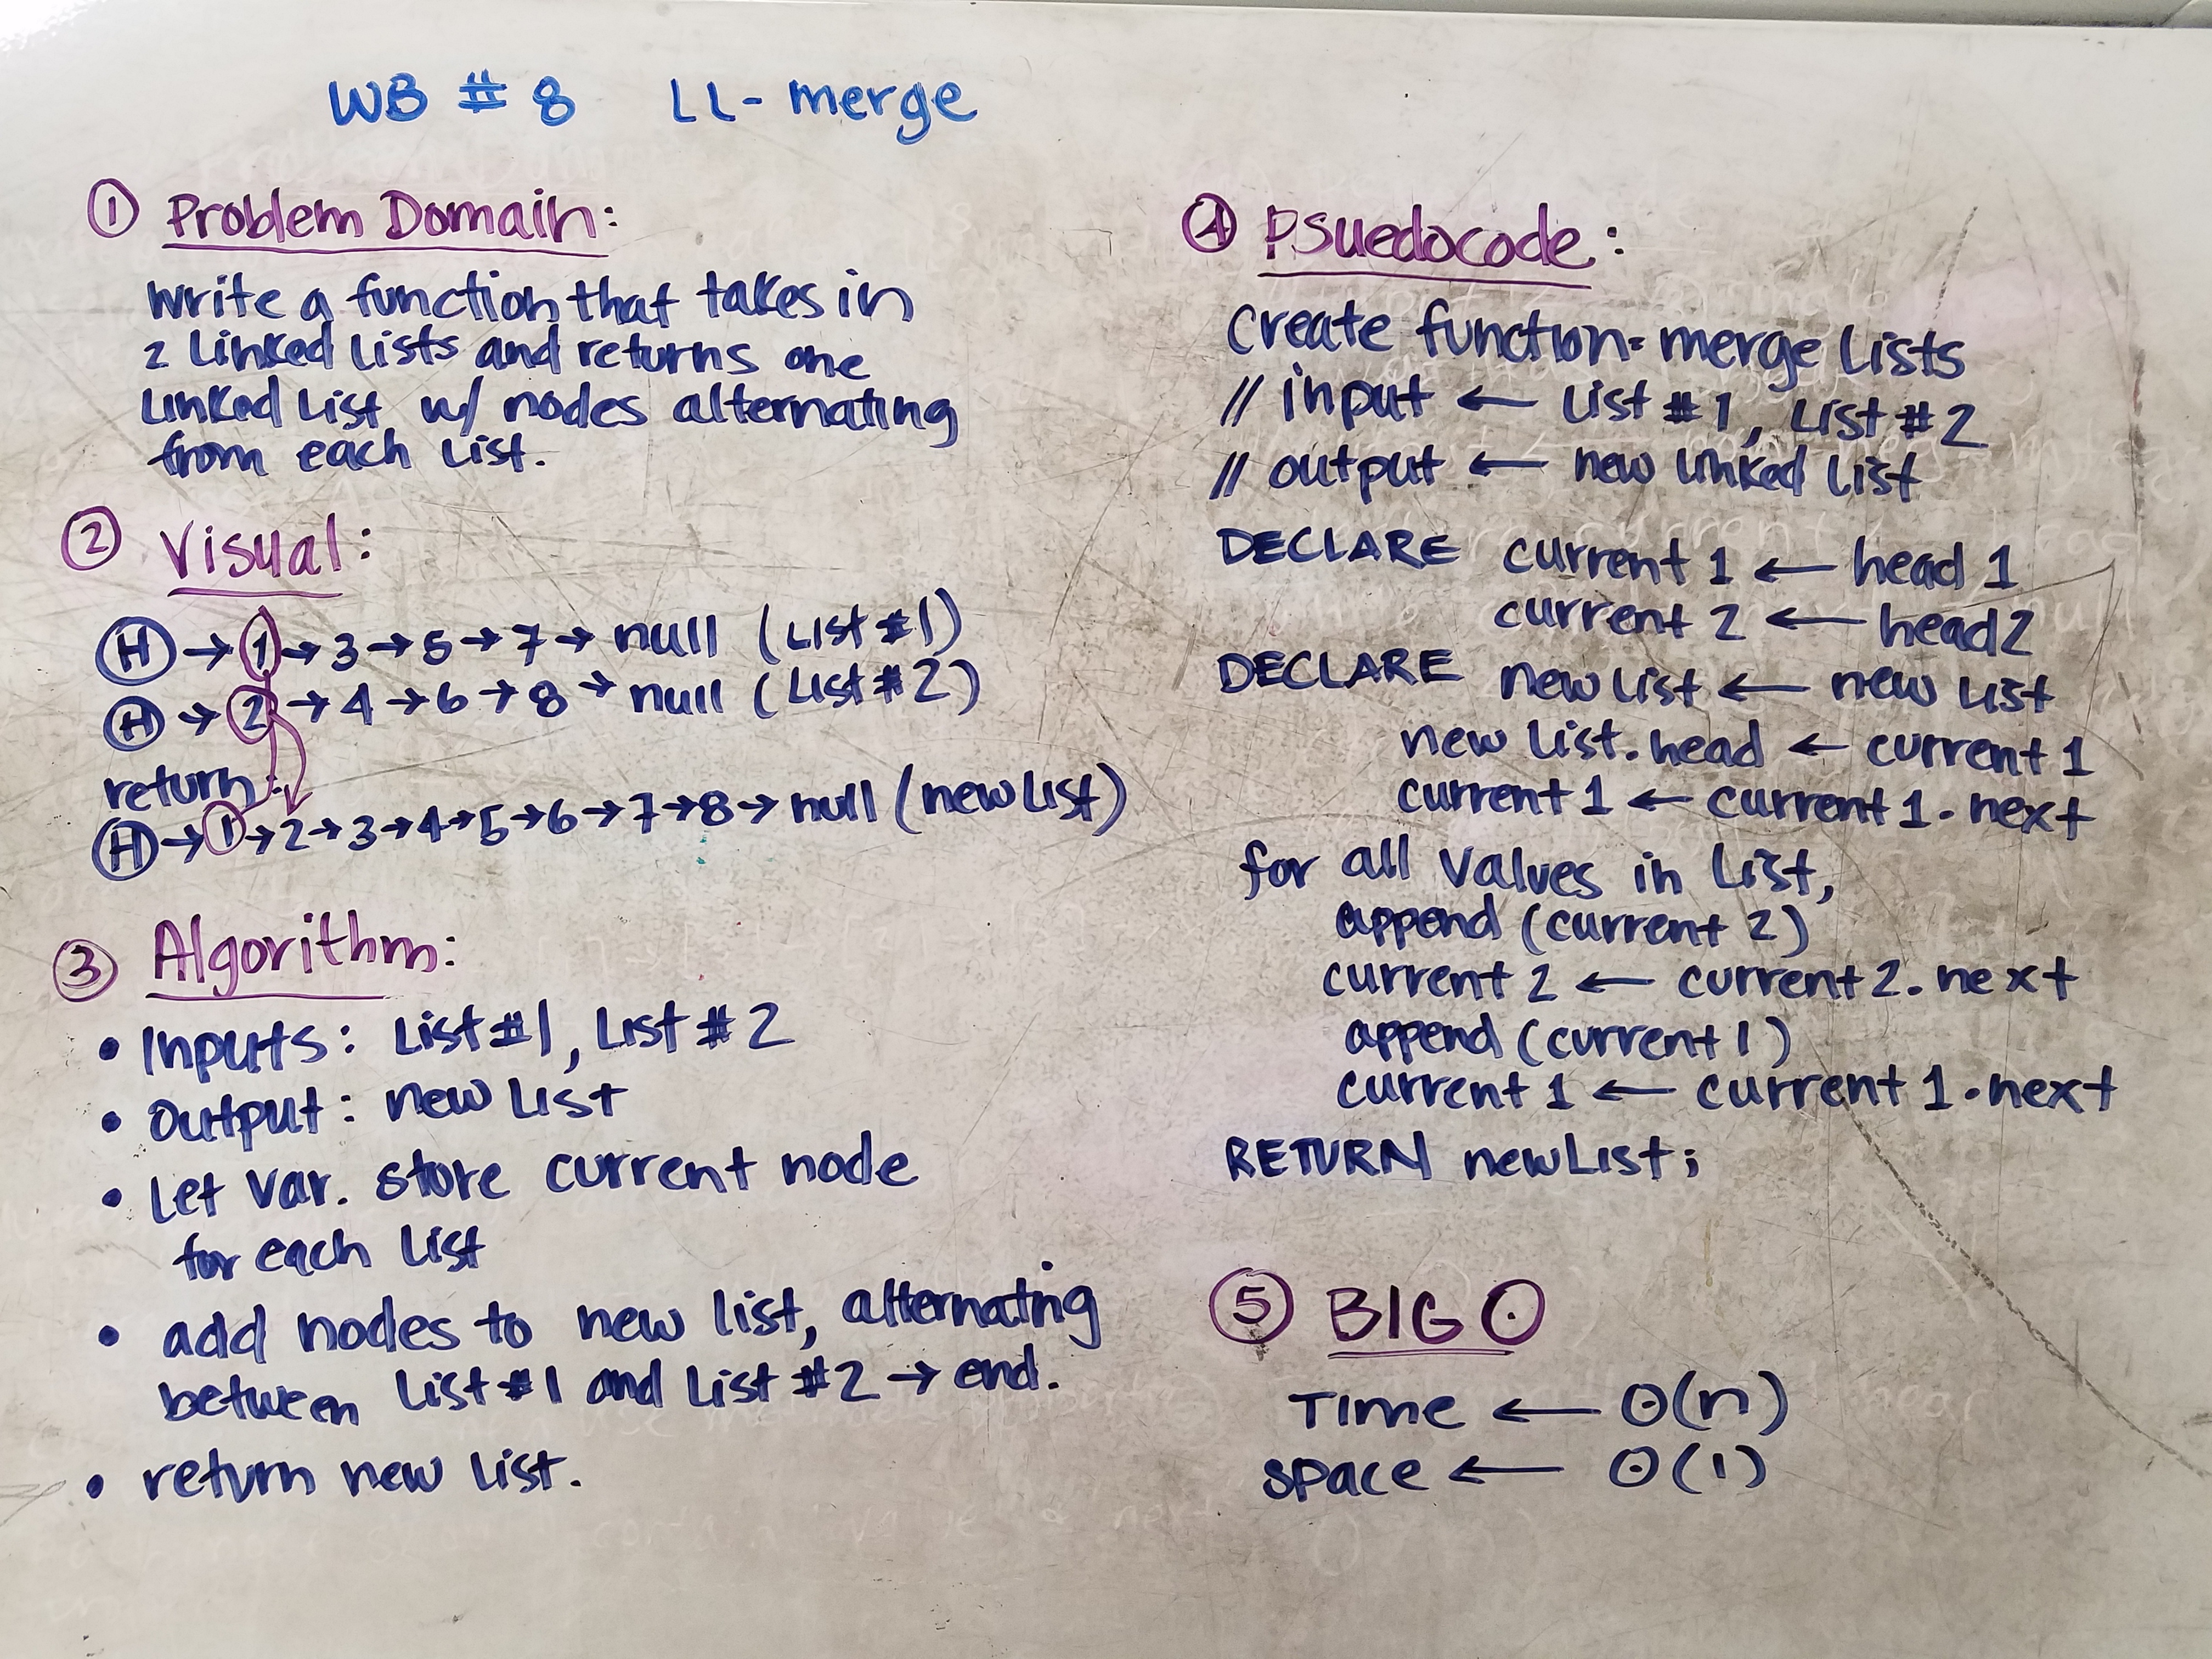 WB # 8 LL - merge
① Problem Domain:
Write a function that takes in
2 Linked Lists and returns one
Linked List w/ nodes alternating
from each List.
② Visual:
H → 1 → 3 → 5 → 7 → null (List #1)
H → 2 → 4 → 6 → 8 → null (List #2)
return:
H → 1 → 2 → 3 → 4 → 5 → 6 → 7 → 8 → null (new List)
③ Algorithm:
• Inputs: List #1, List #2
• Output: new List
• Let var. store current node
for each List
• add nodes to new list, alternating
between List #1 and List #2 → end.
• return new list.
④ Psuedocode:
Create function: merge Lists
// input ← List #1, List #2
// output ← new linked list
DECLARE current 1 ← head 1
current 2 ← head 2
DECLARE new List ← new List
new List.head ← current 1
current 1 ← current 1.next
for all values in List,
append (current 2)
current 2 ← current 2.next
append (current 1)
current 1 ← current 1.next
RETURN newList;
⑤ BIG O
Time ← O(n)
space ← O(1)